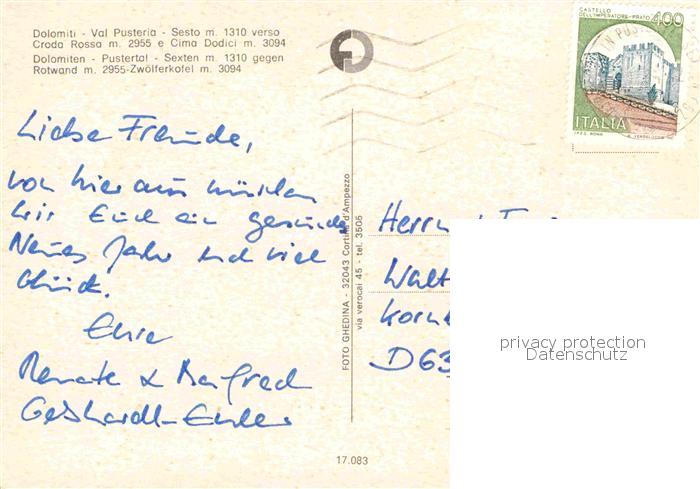 Dolomiti - Val Pusteria - Sesto m. 1310 verso
Croda Rossa m. 2955 e Cima Dodici m. 3094
Dolomiten - Pustertal - Sexten m. 1310 gegen
Rotwand m. 2955-Zwölferkofel m. 3094
CASTELLO
DELL'IMPERATORE-PRATO
400
ITALIA
I.P.Z.S. ROMA
Liebe Freunde,
von hier aus wünschen
wir Euch ein gesundes
Neues Jahr und viel
Glück.
Eure
Renate & Manfred
Gebhardt-Euler
FOTO GHEDINA - 32043 Cortina d'Ampezzo
via verocai 45 - tel. 3505
Herrn
Walt
D 63
privacy protection
Datenschutz
17.083